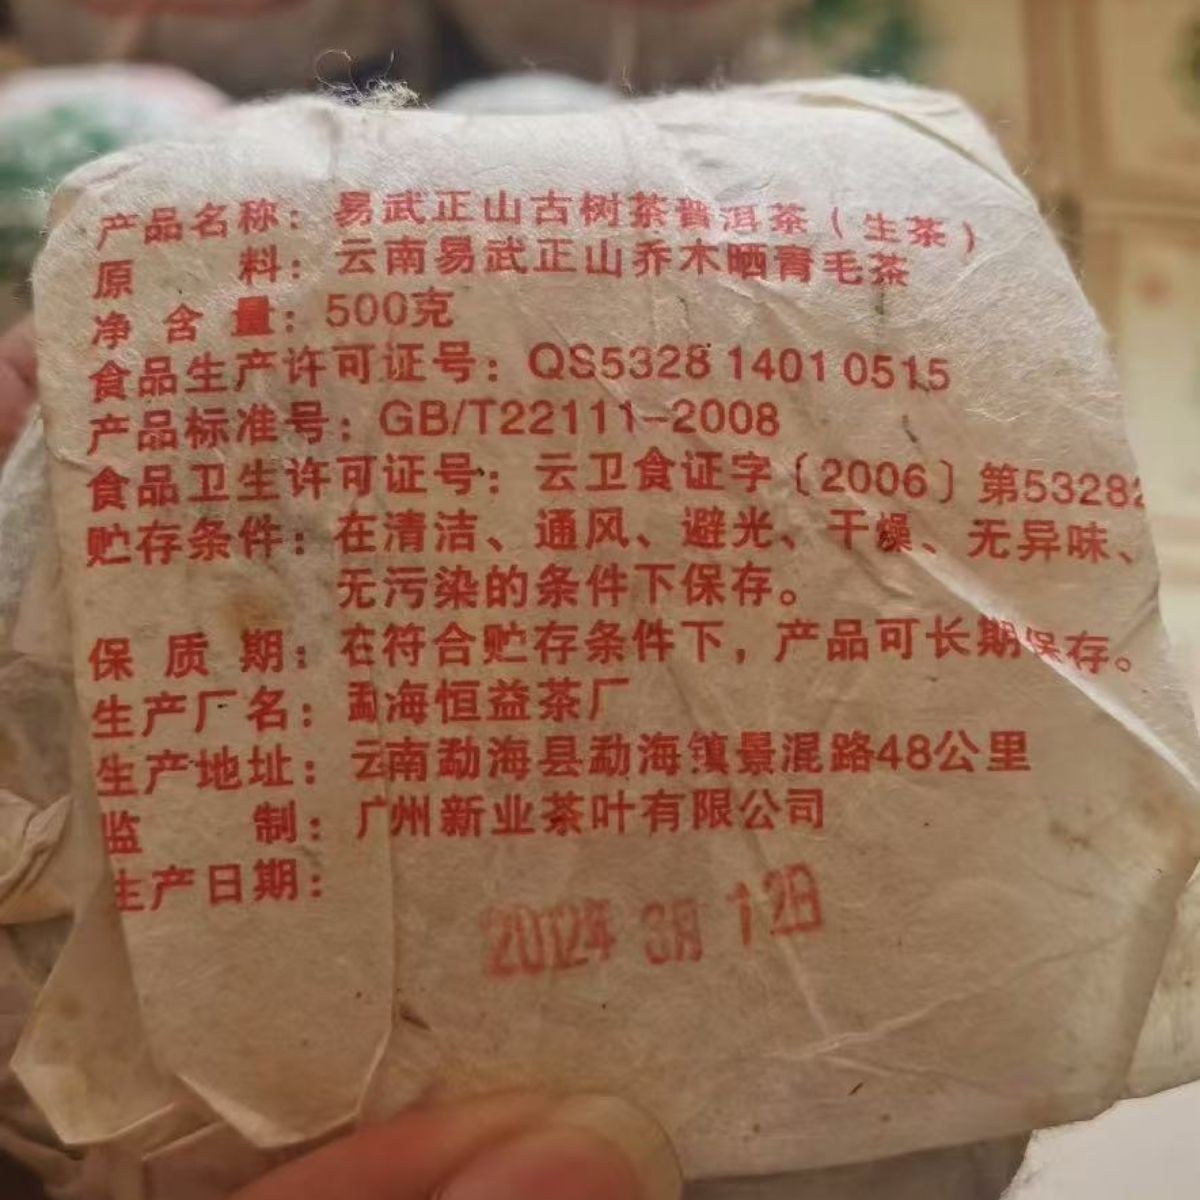 产品名称：易武正山古树茶普洱茶（生茶）
原料：云南易武正山乔木晒青毛茶
净含量：500克
食品生产许可证号：QS5328 1401 0515
产品标准号：GB/T22111-2008
食品卫生许可证号：云卫食证字〔2006〕第53282
贮存条件：在清洁、通风、避光、干燥、无异味、
无污染的条件下保存。
保质期：在符合贮存条件下，产品可长期保存。
生产厂名：勐海恒益茶厂
生产地址：云南勐海县勐海镇景混路48公里
监制：广州新业茶叶有限公司
生产日期：
2012年 3月 12日